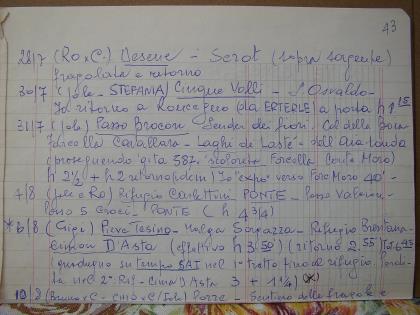 43
28/7 (Ro x C.) Desene - Serot (sopra sorgente)
fragolata e ritorno
30/7 (Iole - STEFANIA) Cinque Valli - S. Osvaldo -
Il ritorno a Roncegno (da ERTERLE) a porta h 1 15
31/7 (Iole) Passo Brocon Sentier dei fiori - Col della Boia
Forcella Cavallara - Laghi de Laste - dell'Aia tonda
proseguendo gita 587.
h 2 1/2 + h 2 ritorno verso Forc. Moro 40'
4/8 (Iole e Ro) Rifugio Carlettini PONTE - Passo
5 Croci - PONTE (h 4 3/4)
* 6/8 (Gigi) Pieve Tesino - Malga Sorgazza - Rifugio Brentana -
Cimon D'Asta (effettivo h 3 50) (ritorno 2.55) Tot 6 45
(guadagno su tempo SAI nel 1° tratto fino al rifugio. Perdita
nel 2° Rif - Cima D'Asta 3 + 1 1/4) (x)
10/8 (Bruno x C - (Iole) - Sentiero delle fragole e